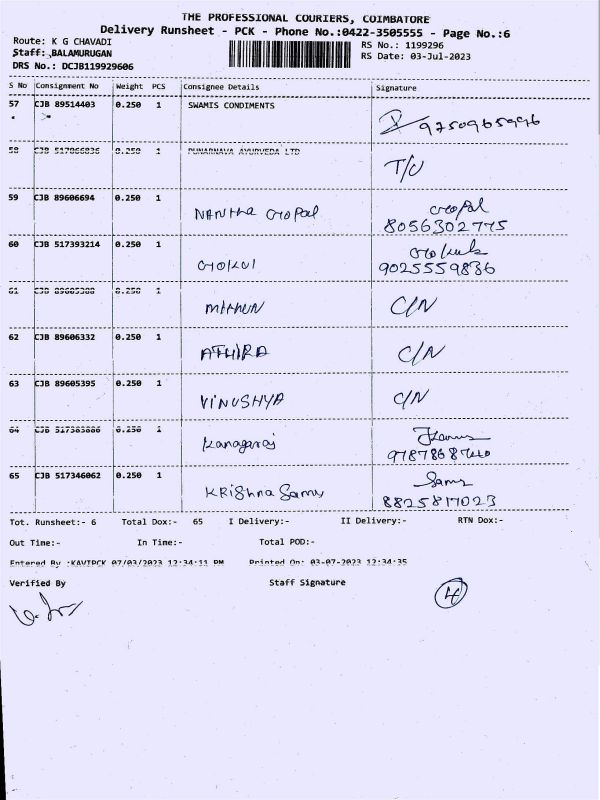 THE PROFESSIONAL COURIERS, COIMBATORE
Delivery Runsheet - PCK - Phone No.:0422-3505555 - Page No.:6
Route: K G CHAVADI RS No.: 1199296
Staff: BALAMURUGAN RS Date: 03-Jul-2023
DRS No.: DCJB119929606
S No Consignment No Weight PCS Consignee Details Signature
57 CJB 89514403 0.250 1 SWAMIS CONDIMENTS
9750965996
58 CJB 517066836 0.250 1 PUNARNAVA AYURVEDA LTD
T/U
59 CJB 89606694 0.250 1
Nantha Gopal Gopal
8056302775
60 CJB 517393214 0.250 1
Gokul Gokul
9025559836
61 CJB 0.250 1
Mithun C/N
62 CJB 89606332 0.250 1
ATHIRA C/N
63 CJB 89605395 0.250 1
VINUSHYA C/N
64 CJB 0.250 1
Kanagaraj
65 CJB 517346062 0.250 1
KRishna Samy Samy
8825817023
Tot. Runsheet:- 6 Total Dox:- 65 I Delivery:- II Delivery:- RTN Dox:-
Out Time:- In Time:- Total POD:-
Entered By :KAVIPCK 07/03/2023 12:34:11 PM Printed On: 03-07-2023 12:34:35
Verified By Staff Signature
4